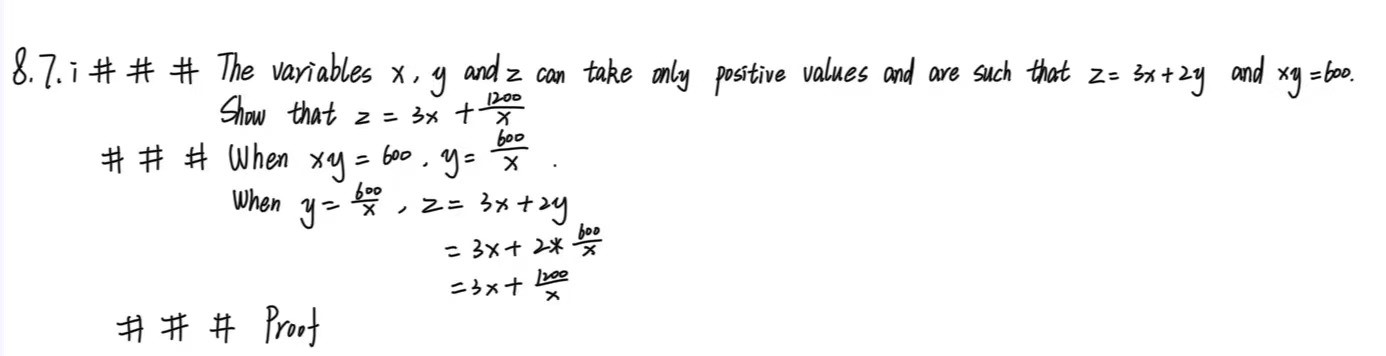 8.7.i # # # The variables x, y and z can take only positive values and are such that z = 3x + 2y and xy = 600.
Show that z = 3x + 1200/x
# # # When xy = 600, y = 600/x .
When y = 600/x , z = 3x + 2y
= 3x + 2* 600/x
= 3x + 1200/x
# # # Proof